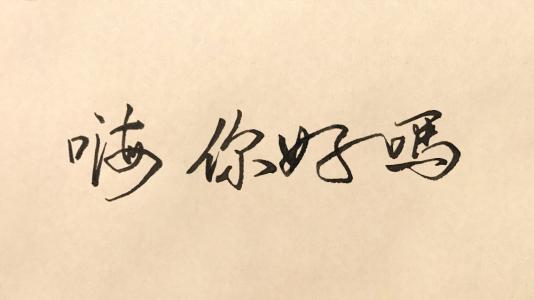 嗨 你好嗎